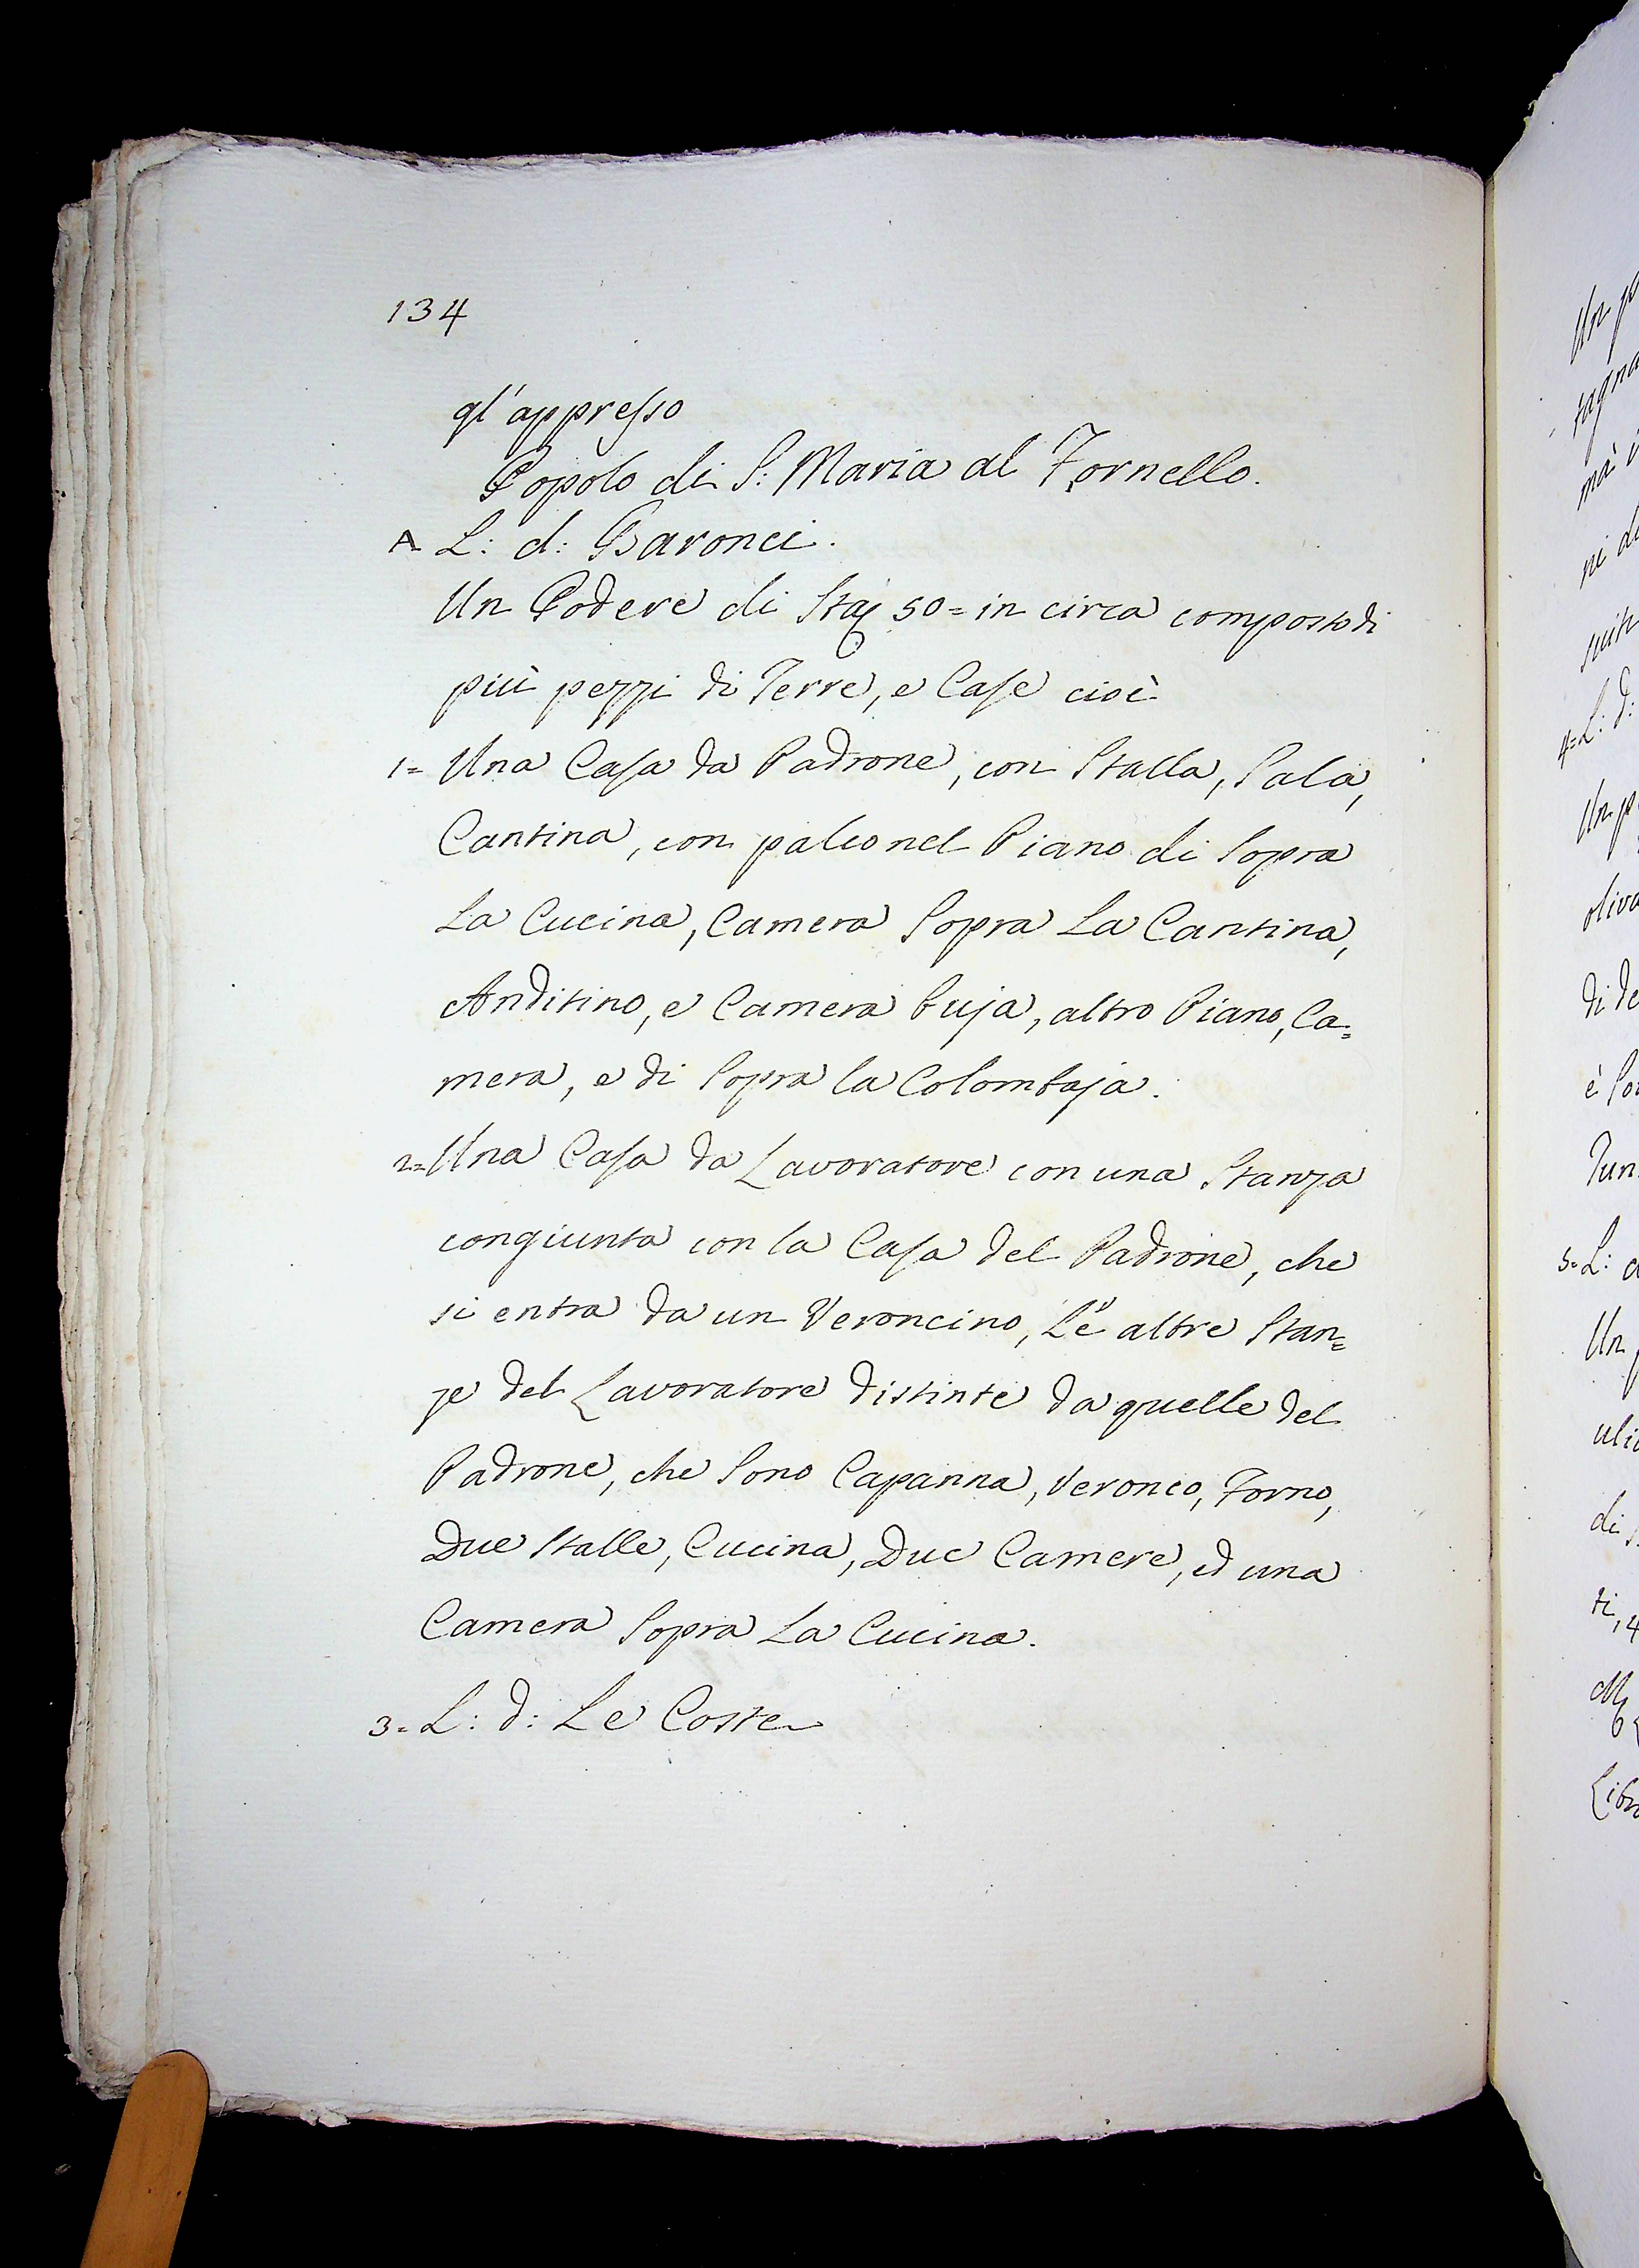 134
gl'appresso
Popolo di S: Maria al Fornello.
A L: d: Baronci.
Un Podere di Staj 50= in circa composto di
più pezzi di Terre, e Case cioè
1= Una Casa da Padrone, con Stalla, Sala,
Cantina, con palco nel Piano di Sopra
La Cucina, Camera Sopra La Cantina,
Anditino, e Camera buja, altro Piano, Ca=
mera, e di Sopra la Colombaja.
2= Una Casa da Lavoratore con una Stanza
congiunta con la Casa del Padrone, che
si entra da un Veroncino, Le altre Stan=
ze del Lavoratore distinte da quelle del
Padrone, che Sono Capanna, Veronco, Forno,
Due Stalle, Cucina, Due Camere, ed una
Camera Sopra La Cucina.
3= L: d: Le Coste
Un p
tagna
mà i
ni di
4= L: d:
Un p
oliva
di de
è So
5= L: d
Un
uli
di
ti, 4
Libr